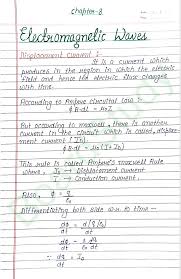 Chapter-8
Electromagnetic Waves
Displacement Current :-
It is a current which
produces in the region in which the electric
field and hence the electric flux changes
with time.
According to Ampere Circuital law :-
∮B·dl = μ₀I
But according to maxwell, there is another
current in the circuit which is called, displace-
ment current (ID).
∮B·dl = μ₀(I+ID)
This rule is called Ampere's maxwell Rule
where, ID → Displacement current
I → Conduction current.
Also, ϕ = q/ε₀
Differentiating both side w.r. to time -
dϕ/dt = d/dt (q/ε₀)
dϕ/dt = 1/ε₀ dq/dt